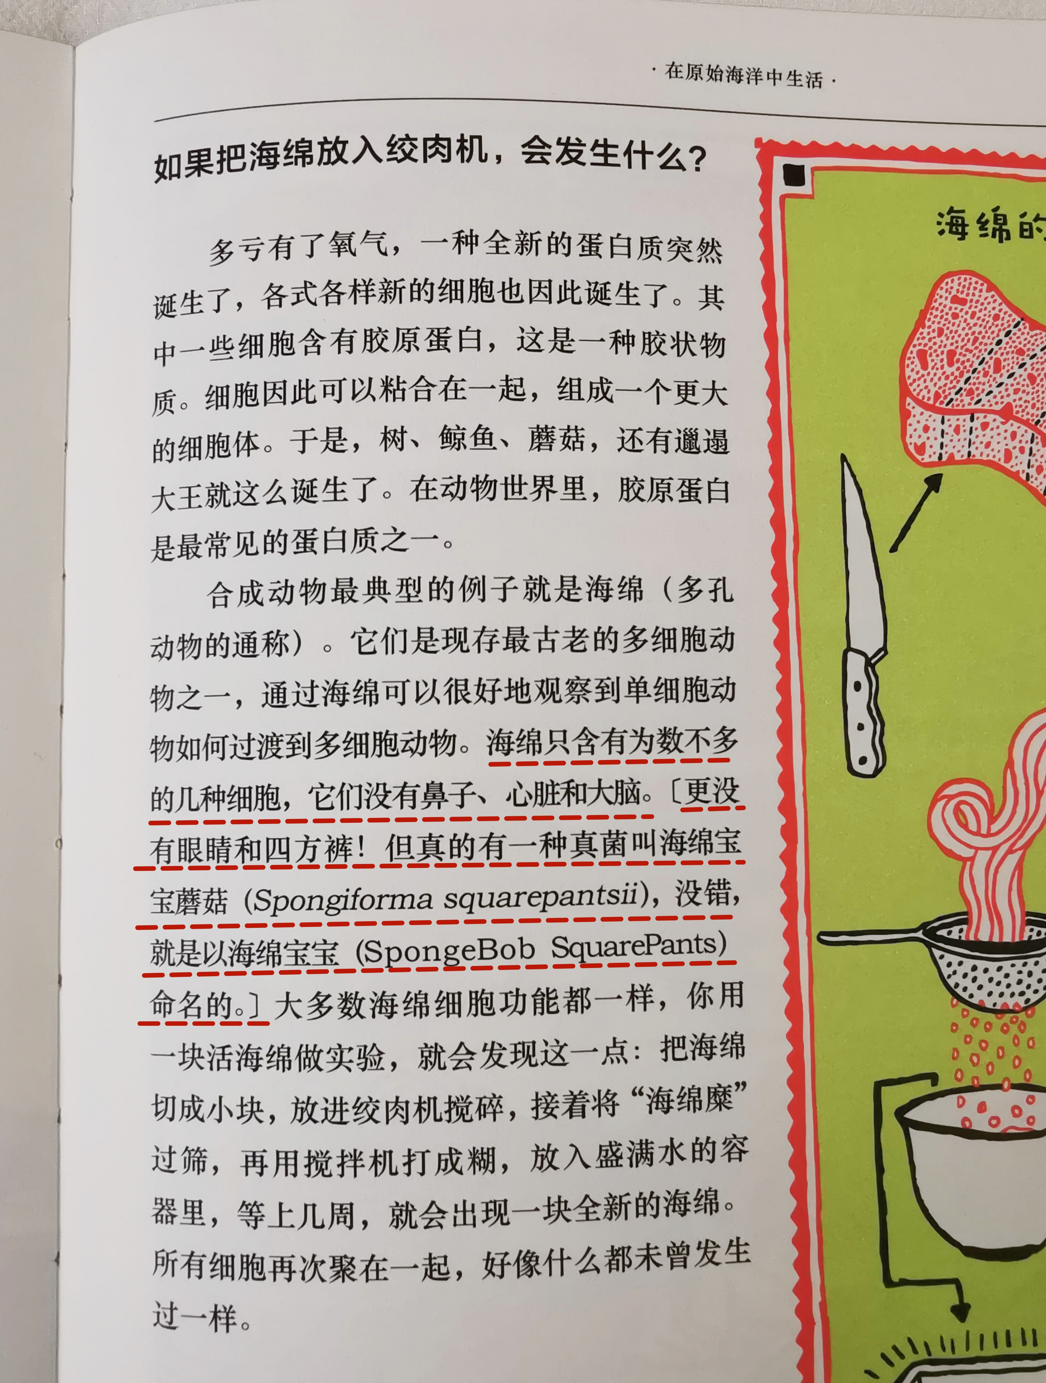 ·在原始海洋中生活·
如果把海绵放入绞肉机，会发生什么？
多亏有了氧气，一种全新的蛋白质突然
诞生了，各式各样新的细胞也因此诞生了。其
中一些细胞含有胶原蛋白，这是一种胶状物
质。细胞因此可以粘合在一起，组成一个更大
的细胞体。于是，树、鲸鱼、蘑菇，还有邋遢
大王就这么诞生了。在动物世界里，胶原蛋白
是最常见的蛋白质之一。
合成动物最典型的例子就是海绵（多孔
动物的通称）。它们是现存最古老的多细胞动
物之一，通过海绵可以很好地观察到单细胞动
物如何过渡到多细胞动物。海绵只含有为数不多
的几种细胞，它们没有鼻子、心脏和大脑。〔更没
有眼睛和四方裤！但真的有一种真菌叫海绵宝
宝蘑菇（Spongiforma squarepantsii），没错，
就是以海绵宝宝（SpongeBob SquarePants）
命名的。〕大多数海绵细胞功能都一样，你用
一块活海绵做实验，就会发现这一点：把海绵
切成小块，放进绞肉机搅碎，接着将“海绵糜”
过筛，再用搅拌机打成糊，放入盛满水的容
器里，等上几周，就会出现一块全新的海绵。
所有细胞再次聚在一起，好像什么都未曾发生
过一样。
海绵的